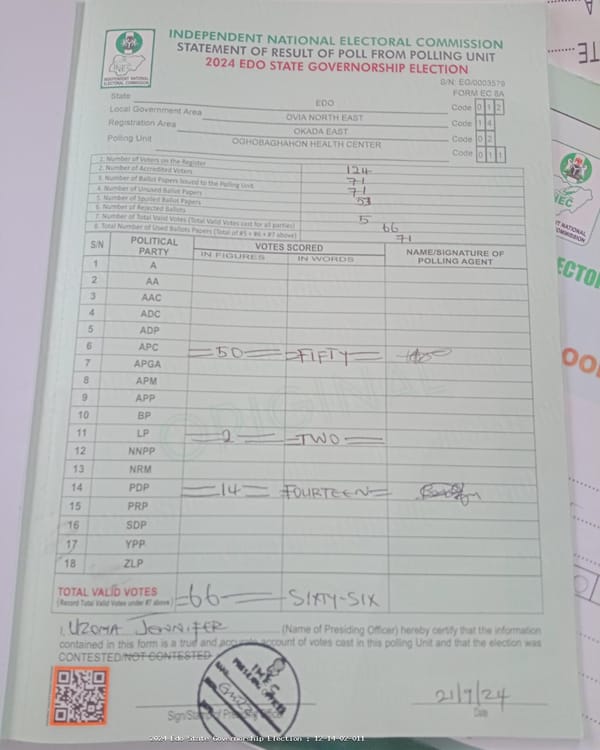 INDEPENDENT NATIONAL ELECTORAL COMMISSION
STATEMENT OF RESULT OF POLL FROM POLLING UNIT
2024 EDO STATE GOVERNORSHIP ELECTION
S/N: EG/0003579
FORM EC 8A
INEC
INDEPENDENT NATIONAL ELECTORAL COMMISSION
State EDO Code 0 1 2
Local Government Area OVIA NORTH EAST Code 1 4
Registration Area OKADA EAST Code 0 2
Polling Unit OGHOBAGHAHON HEALTH CENTER Code 0 1 1
1. Number of Voters on the Register 124
2. Number of Accredited Voters 71
3. Number of Ballot Papers Issued to the Polling Unit 71
4. Number of Unused Ballot Papers 53
5. Number of Spoiled Ballot Papers
6. Number of Rejected Ballots 5
7. Number of Total Valid Votes (Total Valid Votes cast for all parties) 66
8. Total Number of Used Ballots Papers (Total of #5 + #6 + #7 above) 71
S/N POLITICAL PARTY VOTES SCORED NAME/SIGNATURE OF POLLING AGENT
IN FIGURES IN WORDS
1 A
2 AA
3 AAC
4 ADC
5 ADP
6 APC 50 FIFTY
7 APGA
8 APM
9 APP
10 BP
11 LP 2 TWO
12 NNPP
13 NRM
14 PDP 14 FOURTEEN
15 PRP
16 SDP
17 YPP
18 ZLP
ORIGINAL
TOTAL VALID VOTES 66 SIXTY-SIX
(Record Total Valid Votes under #7 above)
I, UZOMA JENNIFER (Name of Presiding Officer) hereby certify that the information
contained in this form is a true and accurate account of votes cast in this polling Unit and that the election was
CONTESTED/NOT CONTESTED
21/9/24
Date
2024 Edo State Governorship Election : 12-14-02-011